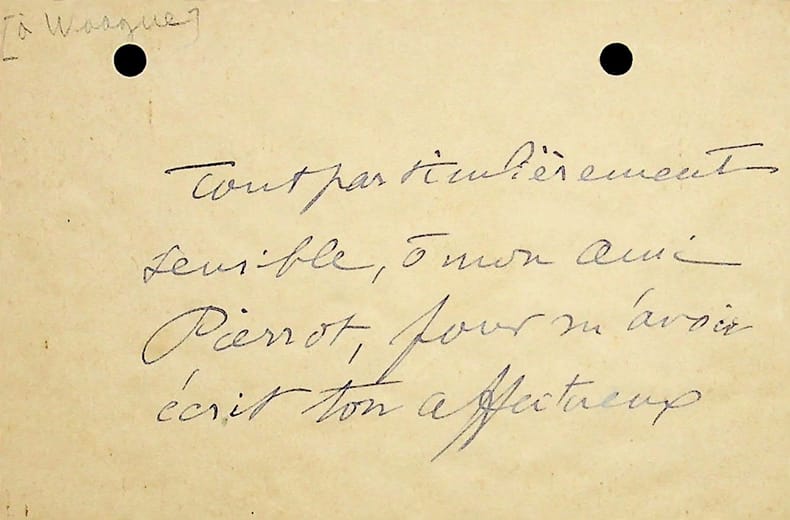 [à Waague]
Tout particulièrement
sensible, ô mon ami
Pierrot, pour m'avoir
écrit ton affectueux